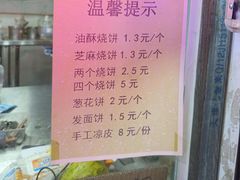 温馨提示
油酥烧饼 1.3元/个
芝麻烧饼 1.3元/个
两个烧饼 2.5元
四个烧饼 5元
葱花饼 2元/个
发面饼 1.5元/个
手工凉皮 8元/份